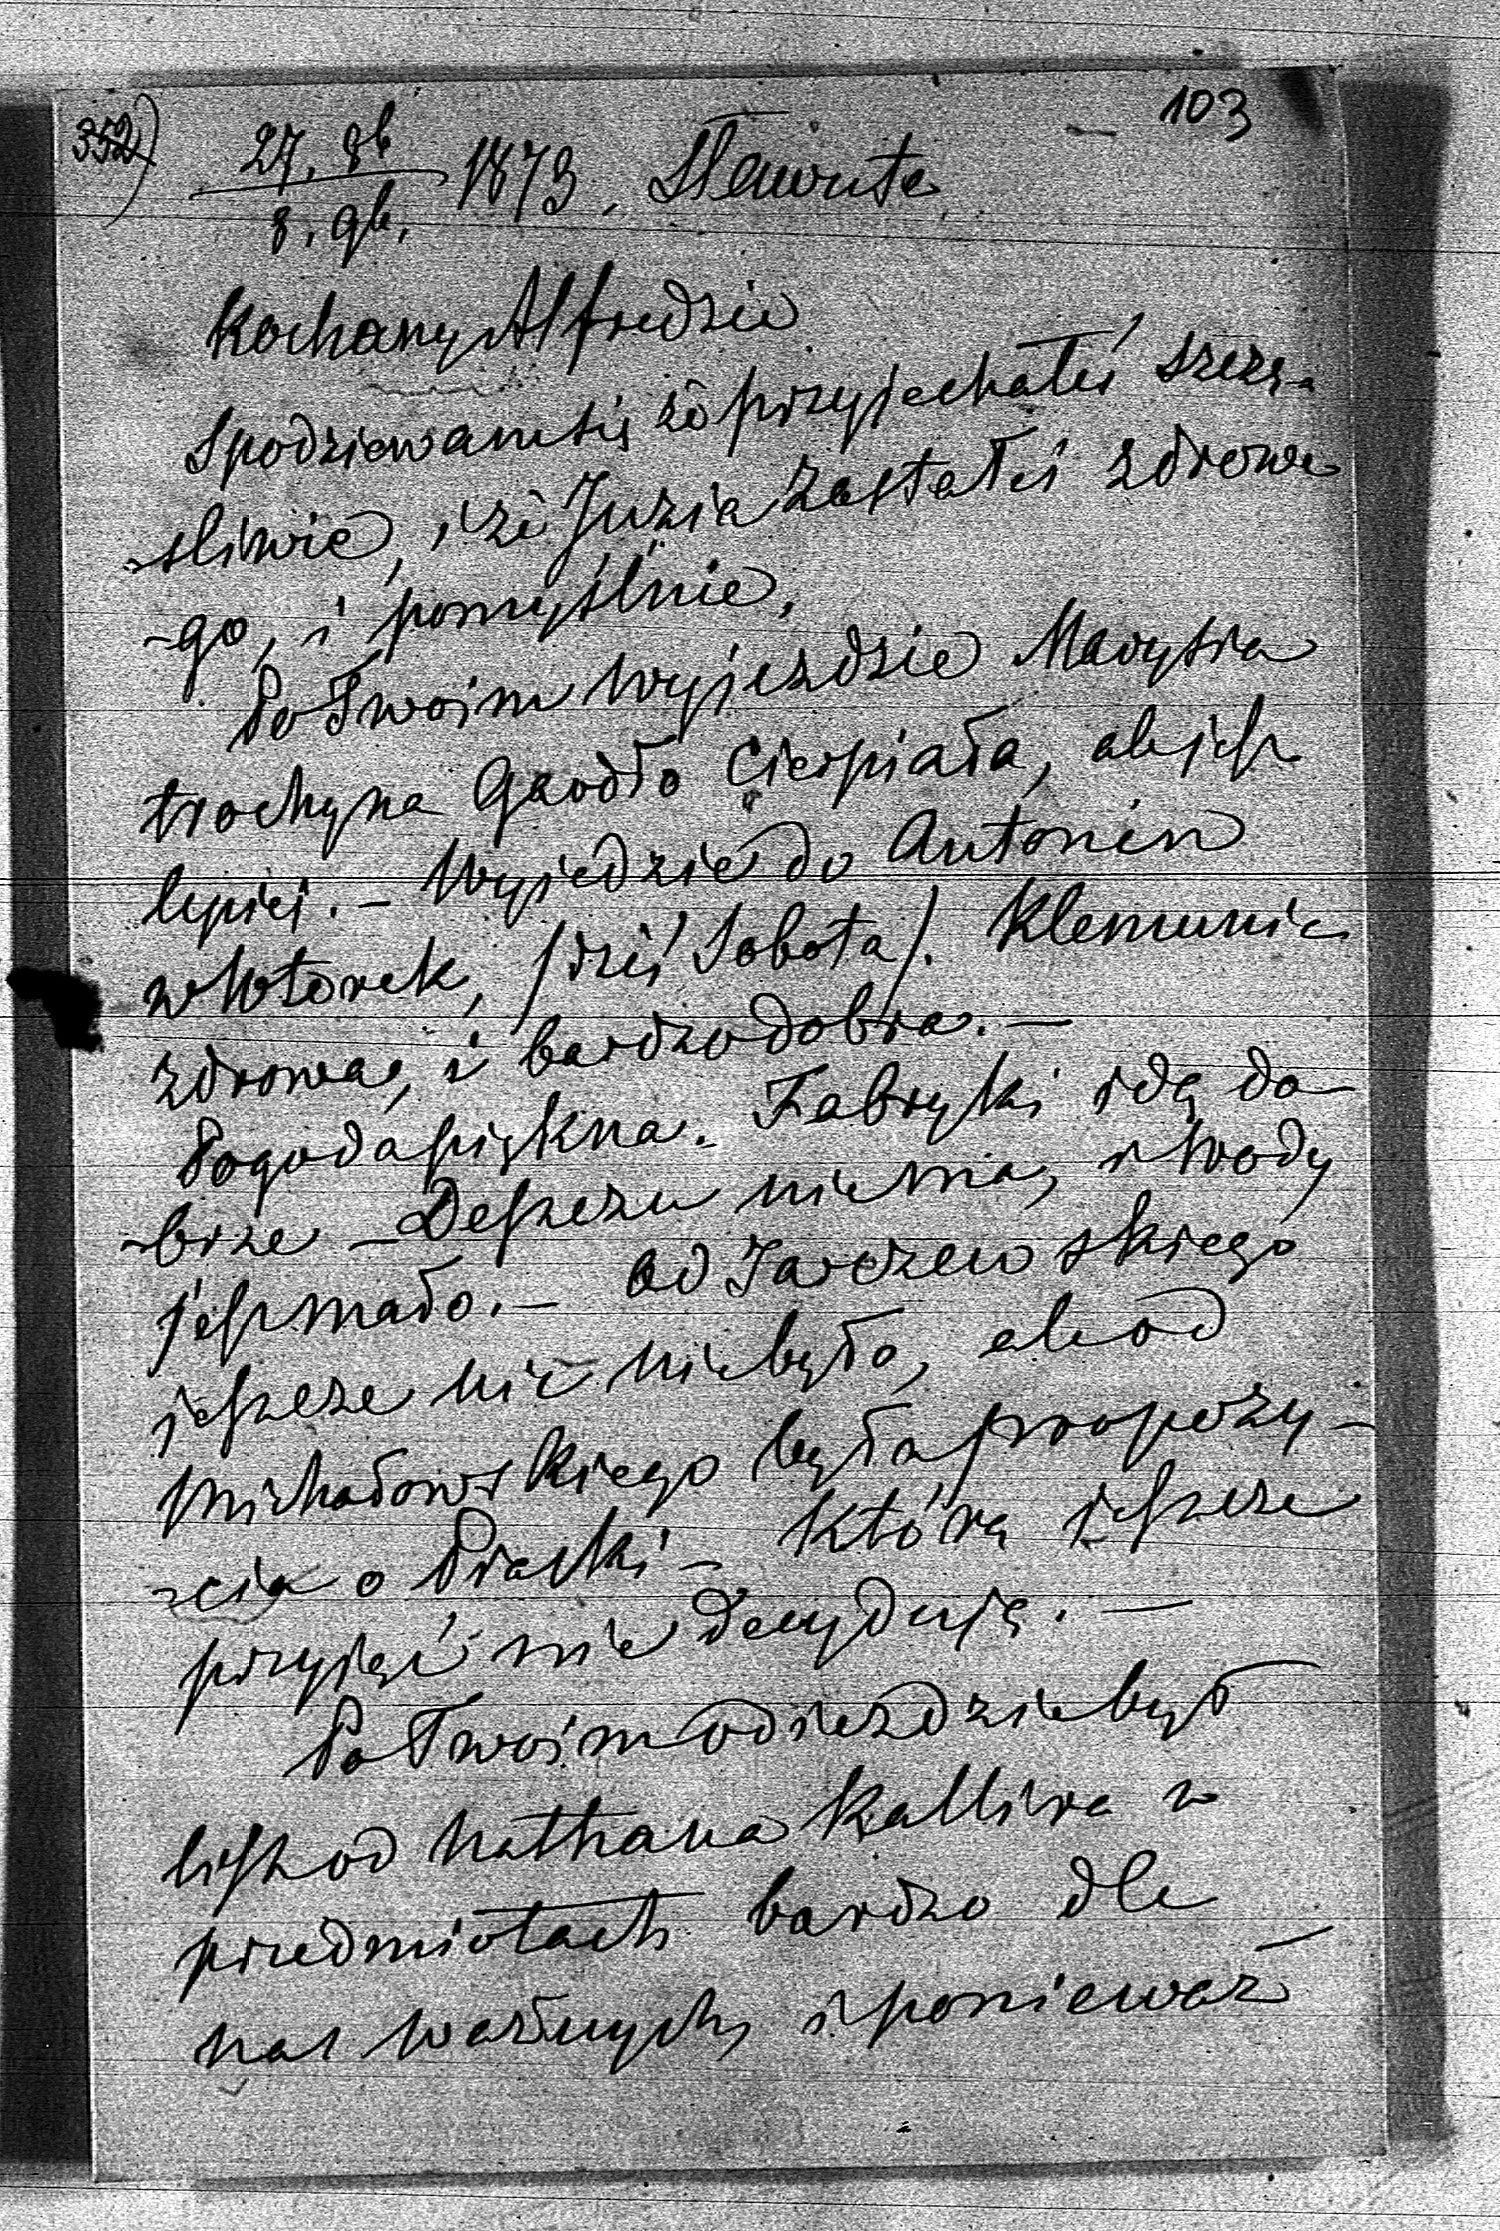 352)
103
27. 8b 1873, Sławuta
8. 9b.
Kochany Alfredzie
Spodziewam się że przyjechałeś szczę-
-sliwie, i że Juzia zastałeś zdrowe
-go, i pomyślnie,
Po Twoim wyjezdzie Marysia
trochę na Gardło Cierpiała, ale jest
lepiej. - Wyjedzie do Antonin
w Wtorek, /dziś Sobota/. Klemunia
zdrowa, i bardzo dobra. -
Pogoda piękna. Fabryki idą do-
-brze - Deszczu niema, i wody
jest mało. - Od Jarczewskiego
jeszcze nic niebyło, ale od
Michałowskiego była propozy-
-cia o Piaski - którą jeszcze
przyjąć nie decyduję. -
Po Twoim odiezdzie był
list od Nathana Kallira w
przedmiotach bardzo dla
nas ważnych, i ponieważ